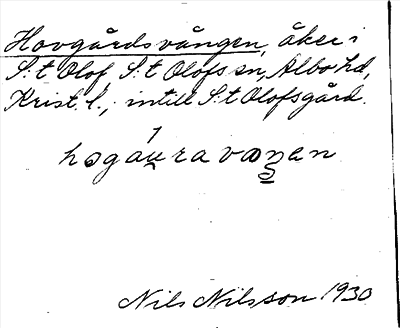 Hovgårdsvången, åker i
S:t Olof S:t Olofs sn, Albo hd,
Krist. l., intill S:t Olofsgård.
hogáu̯ravaŋen
Nils Nilsson 1930